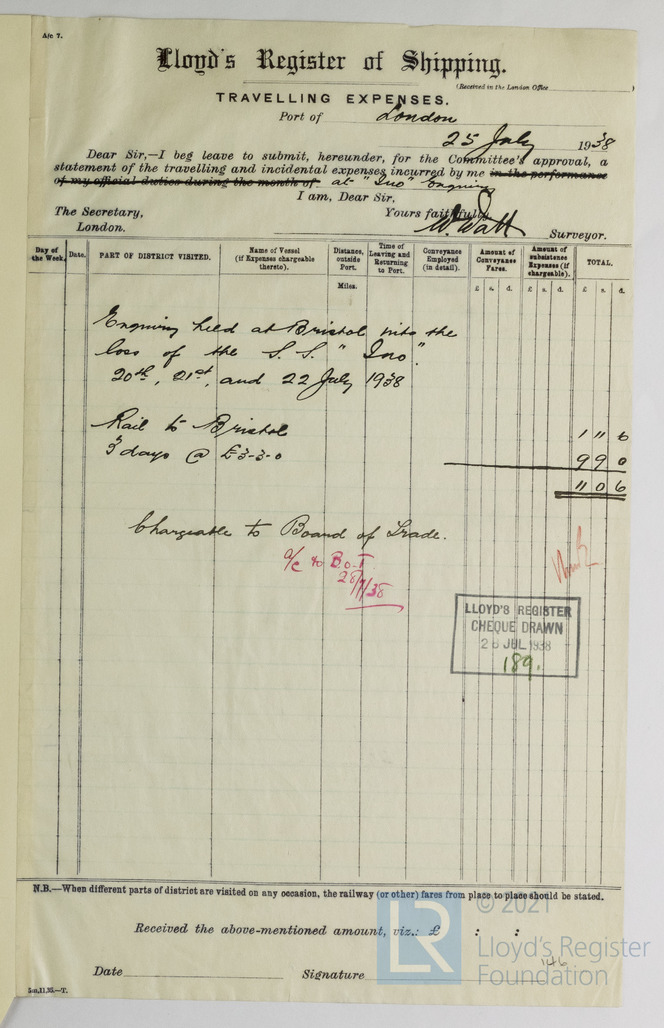 A/c 7.
Lloyd's Register of Shipping.
(Received in the London Office )
TRAVELLING EXPENSES.
Port of London
25 July 1938
Dear Sir,—I beg leave to submit, hereunder, for the Committee's approval, a
statement of the travelling and incidental expenses incurred by me in the performance
of my official duties during the month of at "Ino" Enquiry
I am, Dear Sir,
The Secretary, Yours faithfully,
London. W. Watt Surveyor.
Day of the Week. Date. PART OF DISTRICT VISITED. Name of Vessel (if Expenses chargeable thereto). Distance, outside Port. Time of Leaving and Returning to Port. Conveyance Employed (in detail). Amount of Conveyance Fares. Amount of subsistence Expenses (if chargeable). TOTAL.
Miles. £ s. d. £ s. d. £ s. d.
Enquiry held at Bristol into the
loss of the S.S. "Ino".
20th, 21st, and 22 July 1938
Rail to Bristol 1 11 6
3 days @ £3-3-0 9 9 0
11 0 6
Chargeable to Board of Trade.
a/c to B.o.T.
28/7/38
LLOYD'S REGISTER
CHEQUE DRAWN
28 JUL 1938
189.
N.B.—When different parts of district are visited on any occasion, the railway (or other) fares from place to place should be stated.
Received the above-mentioned amount, viz.: £ : :
Date Signature
146
5m,11,35.—T.
LR
© 2021
Lloyd's Register
Foundation